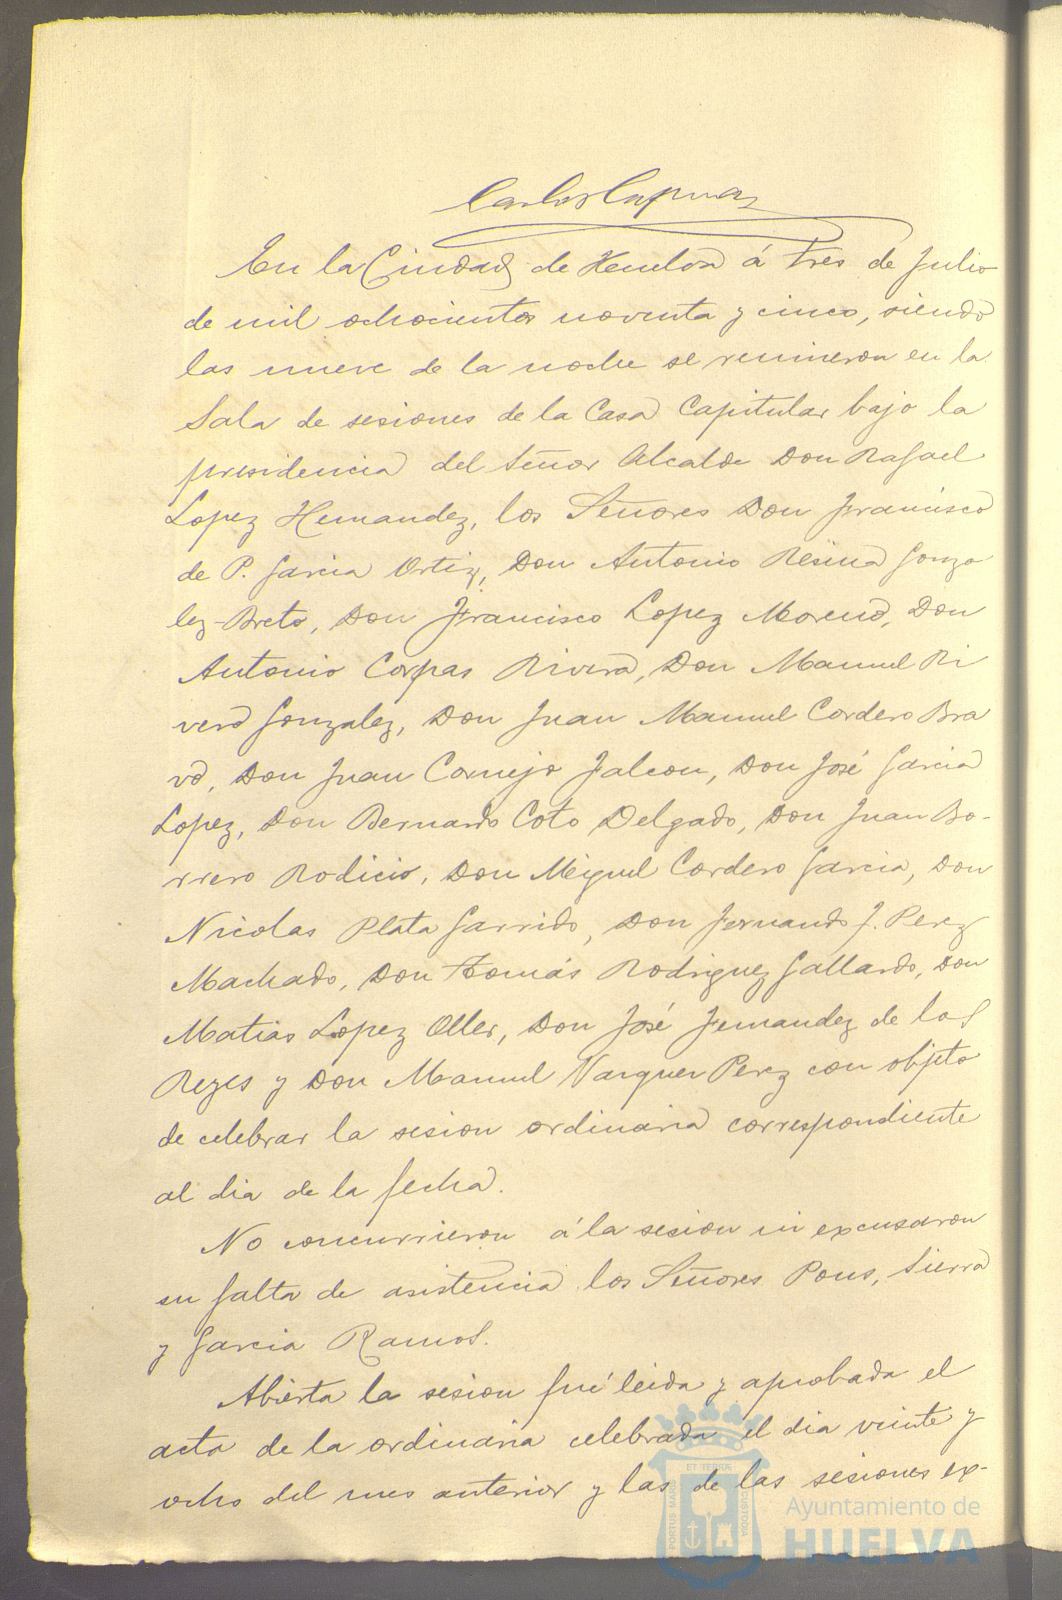 Carlos
En la Ciudad de Huelva á tres de Julio
de mil ochocientos noventa y cinco, siendo
las nueve de la noche se reunieron en la
Sala de sesiones de la Casa Capitular bajo la
presidencia del Señor Alcalde Don Rafael
Lopez Hernandez, los Señores Don Francisco
de P. Garcia Ortiz, Don Antonio Resina Gonza
lez-Breto, Don Francisco Lopez Moreno, Don
Antonio Corpas Rivera, Don Manuel Ri
vero Gonzalez, Don Juan Manuel Cordero Bra
vo, Don Juan Cornejo Jalcon, Don José Garcia
Lopez, Don Bernardo Coto Delgado, Don Juan Bo-
rrero Rodicio, Don Miguel Cordero Garcia, Don
Nicolas Plata Garrido, Don Fernando J. Perez
Machado, Don Tomás Rodriguez Gallardo, Don
Matias Lopez Oller, Don José Fernandez de los
Reyes y Don Manuel Vazquez Perez con objeto
de celebrar la sesion ordinaria correspondiente
al dia de la fecha.
No concurrieron á la sesion ni excusaron
su falta de asistencia los Señores Pons, Sierra
y Garcia Ramos.
Abierta la sesion fué leida y aprobada el
acta de la ordinaria celebrada el dia veinte y
ocho del mes anterior y las de las sesiones ex-
PORTUS MARIS ET TERRÆ CUSTODIA
Ayuntamiento de
HUELVA